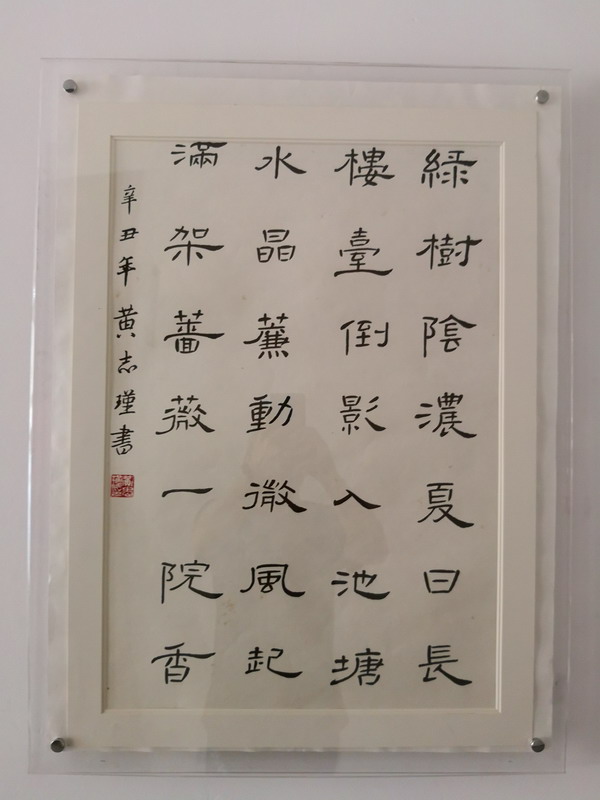 綠樹陰濃夏日長
樓臺倒影入池塘
水晶薕動微風起
滿架薔薇一院香
辛丑年黄志瑾書